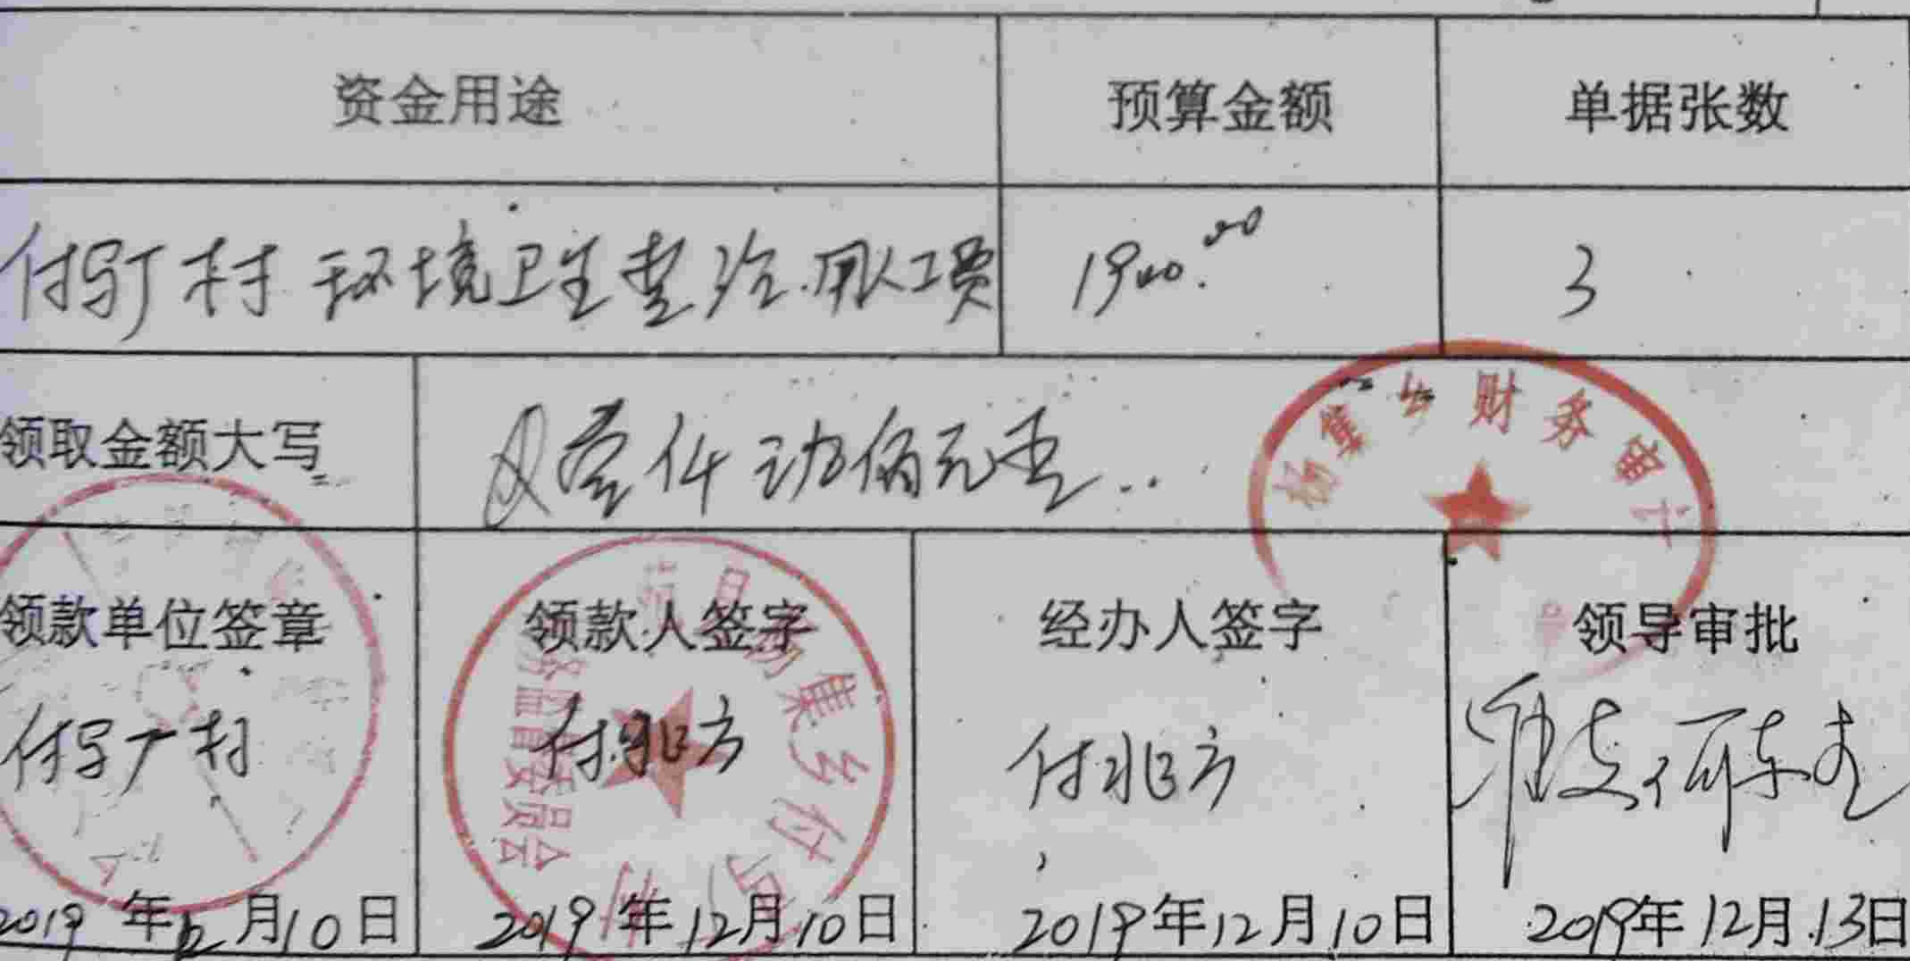 资金用途 预算金额 单据张数
付写厂村环境卫生整治.用人工费 1900.00 3
领取金额大写 壹仟玖佰元整
杨集乡财务审计
领款单位签章 领款人签字 经办人签字 领导审批
付写厂村 付兆方 付兆方
杨集乡付写厂村
务监督委员会
2019年12月10日 2019年12月10日 2019年12月10日 2019年12月13日